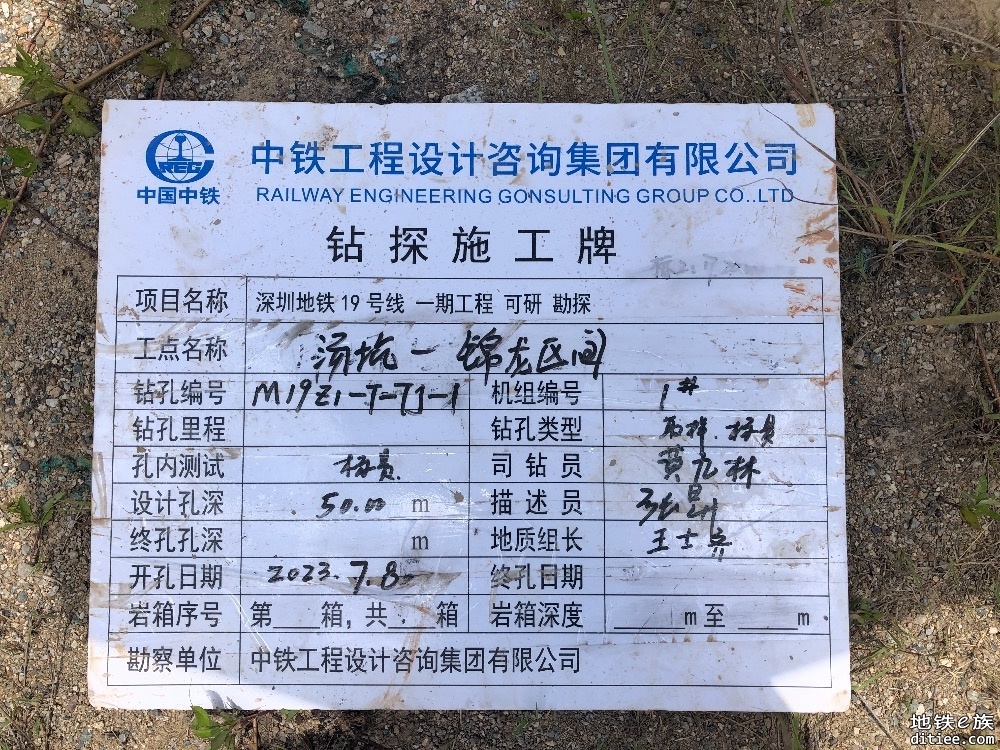 中铁工程设计咨询集团有限公司
REC
中国中铁
RAILWAY ENGINEERING GONSULTING GROUP CO..LTD
钻探施工牌
项目名称 深圳地铁19号线 一期工程 可研 勘探
工点名称 汤坑一锦龙区间
钻孔编号 M19Z1-T-TJ-1 机组编号 1#
钻孔里程 钻孔类型 取样.标贯
孔内测试 标贯. 司钻员 黄九林
设计孔深 50.00 m 描述员
终孔孔深 m 地质组长 王士亮
开孔日期 2023.7.8 终孔日期
岩箱序号 第 箱,共 箱 岩箱深度 m至 m
勘察单位 中铁工程设计咨询集团有限公司
地铁e族
ditiee.com